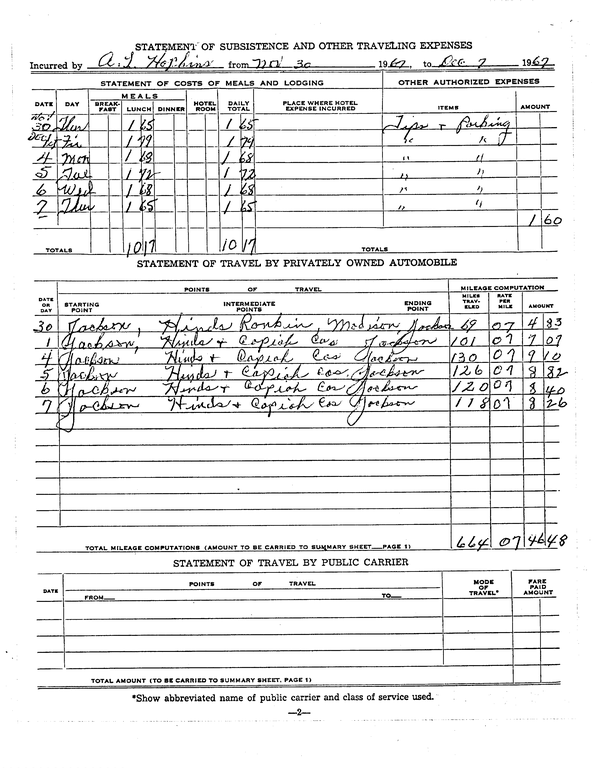 STATEMENT OF SUBSISTENCE AND OTHER TRAVELING EXPENSES
Incurred by A. L. Hopkins from Nov 30 1967, to Dec 7 1967
STATEMENT OF COSTS OF MEALS AND LODGING OTHER AUTHORIZED EXPENSES
MEALS
DATE DAY BREAK-FAST LUNCH DINNER HOTEL ROOM DAILY TOTAL PLACE WHERE HOTEL EXPENSE INCURRED ITEMS AMOUNT
Nov
30 Thur 1 65 1 65 Tips + Parking
Dec 1st Fri 1 79 1 79 " "
4 Mon 1 68 1 68 " "
5 Tue 1 72 1 72 " "
6 Wed 1 68 1 68 " "
7 Thur 1 65 1 65 " "
1 60
TOTALS 10 17 10 17 TOTALS
STATEMENT OF TRAVEL BY PRIVATELY OWNED AUTOMOBILE
POINTS OF TRAVEL MILEAGE COMPUTATION
DATE OR DAY STARTING POINT INTERMEDIATE POINTS ENDING POINT MILES TRAV-ELED RATE PER MILE AMOUNT
30 Jackson, Hinds Rankin, Madison, Jackson 69 07 4 83
1 Jackson, Hinds + Copiah Cos Jackson 101 07 7 07
4 Jackson Hinds + Copiah Cos Jackson 130 07 9 10
5 Jackson Hinds + Copiah Cos. Jackson 126 07 8 82
6 Jackson Hinds + Copiah Cos Jackson 120 07 8 40
7 Jackson Hinds + Copiah Cos Jackson 118 07 8 26
TOTAL MILEAGE COMPUTATIONS (AMOUNT TO BE CARRIED TO SUMMARY SHEET—PAGE 1) 664 07 46 48
STATEMENT OF TRAVEL BY PUBLIC CARRIER
DATE POINTS OF TRAVEL MODE OF TRAVEL* FARE PAID AMOUNT
FROM— TO—
TOTAL AMOUNT (TO BE CARRIED TO SUMMARY SHEET, PAGE 1)
*Show abbreviated name of public carrier and class of service used.
—2—